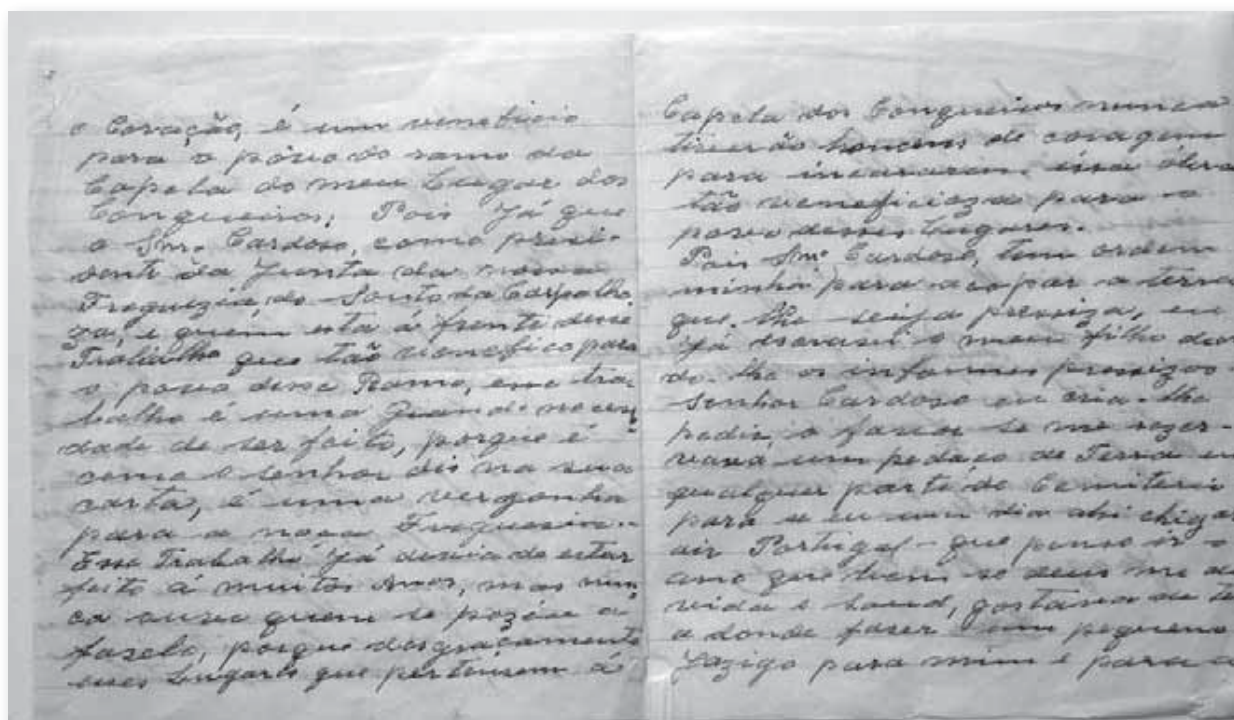 o Coração, é um veneficio
para o pôvo do ramo da
Capela do meu Lugar dos
Conqueiros; Pois Já que
o Snr. Cardoso, como presi-
dente da Junta da nossa
Freguezia, do Souto da Carpalho
za, é quem esta á frente desse
Trabalho que tão venefico para
o povo desse Ramo, esse tra
balho é uma Grande necesi
dade de ser feito, porque é
como o senhor dis na sua
carta, é uma vergonha
para a nosa Freguesia.
Esse Trabalho Já devia de estar
feito á muitos anos, mas nun
ca ouve quem se pozése a
faselo, porque desgraçamente
eses Lugares que pertensem á
Capela dos Conqueiros nunca
tiverão homens de coragem
para essa óbra
tão veneficioza para o
povo desses Lugares.
Pois Snr. Cardoso, tem ordem
minha para acopar a terra
que lhe seija preciza, eu
já escrevi o meu filho dan
do-lhe os informes precizos
senhor Cardoso eu cria-lhe
pedir, o favor se me rezer-
vava um pedaço de Terra em
qualquer parte do Cemiterio
para se eu um dia ahi chigar
air Portugal - que penso ir o
ano que vem se deus me der
vida e saud, gostava de ter
a donde faser um pequeno
Jazigo para mim e para a